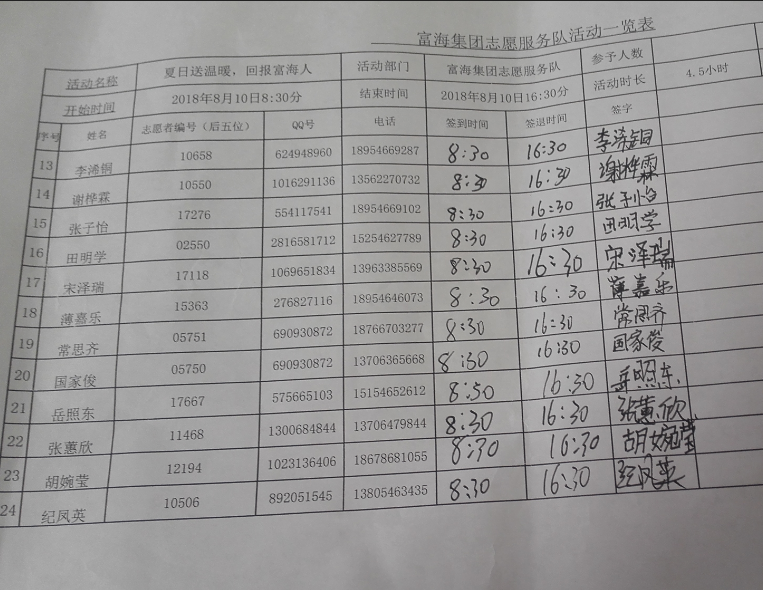 富海集团志愿服务队活动一览表
活动名称 夏日送温暖，回报富海人 活动部门 富海集团志愿服务队 参予人数
开始时间 2018年8月10日8:30分 结束时间 2018年8月10日16:30分 活动时长 4.5小时
序号 姓名 志愿者编号（后五位） QQ号 电话 签到时间 签退时间 签字
13 李浠铜 10658 624948960 18954669287 8:30 16:30 李浠铜
14 谢桦霖 10550 1016291136 13562270732 8:30 16:30 谢桦霖
15 张子怡 17276 554117541 18954669102 8:30 16:30 张子怡
16 田明学 02550 2816581712 15254627789 8:30 16:30 田明学
17 宋泽瑞 17118 1069651834 13963385569 8:30 16:30 宋泽瑞
18 薄嘉乐 15363 276827116 18954646073 8:30 16:30 薄嘉乐
19 常思齐 05751 690930872 18766703277 8:30 16:30 常思齐
20 国家俊 05750 690930872 13706365668 8:30 16:30 国家俊
21 岳照东 17667 575665103 15154652612 8:30 16:30 岳照东
22 张蕙欣 11468 1300684844 13706479844 8:30 16:30 张蕙欣
23 胡婉莹 12194 1023136406 18678681055 8:30 16:30 胡婉莹
24 纪凤英 10506 892051545 13805463435 8:30 16:30 纪凤英